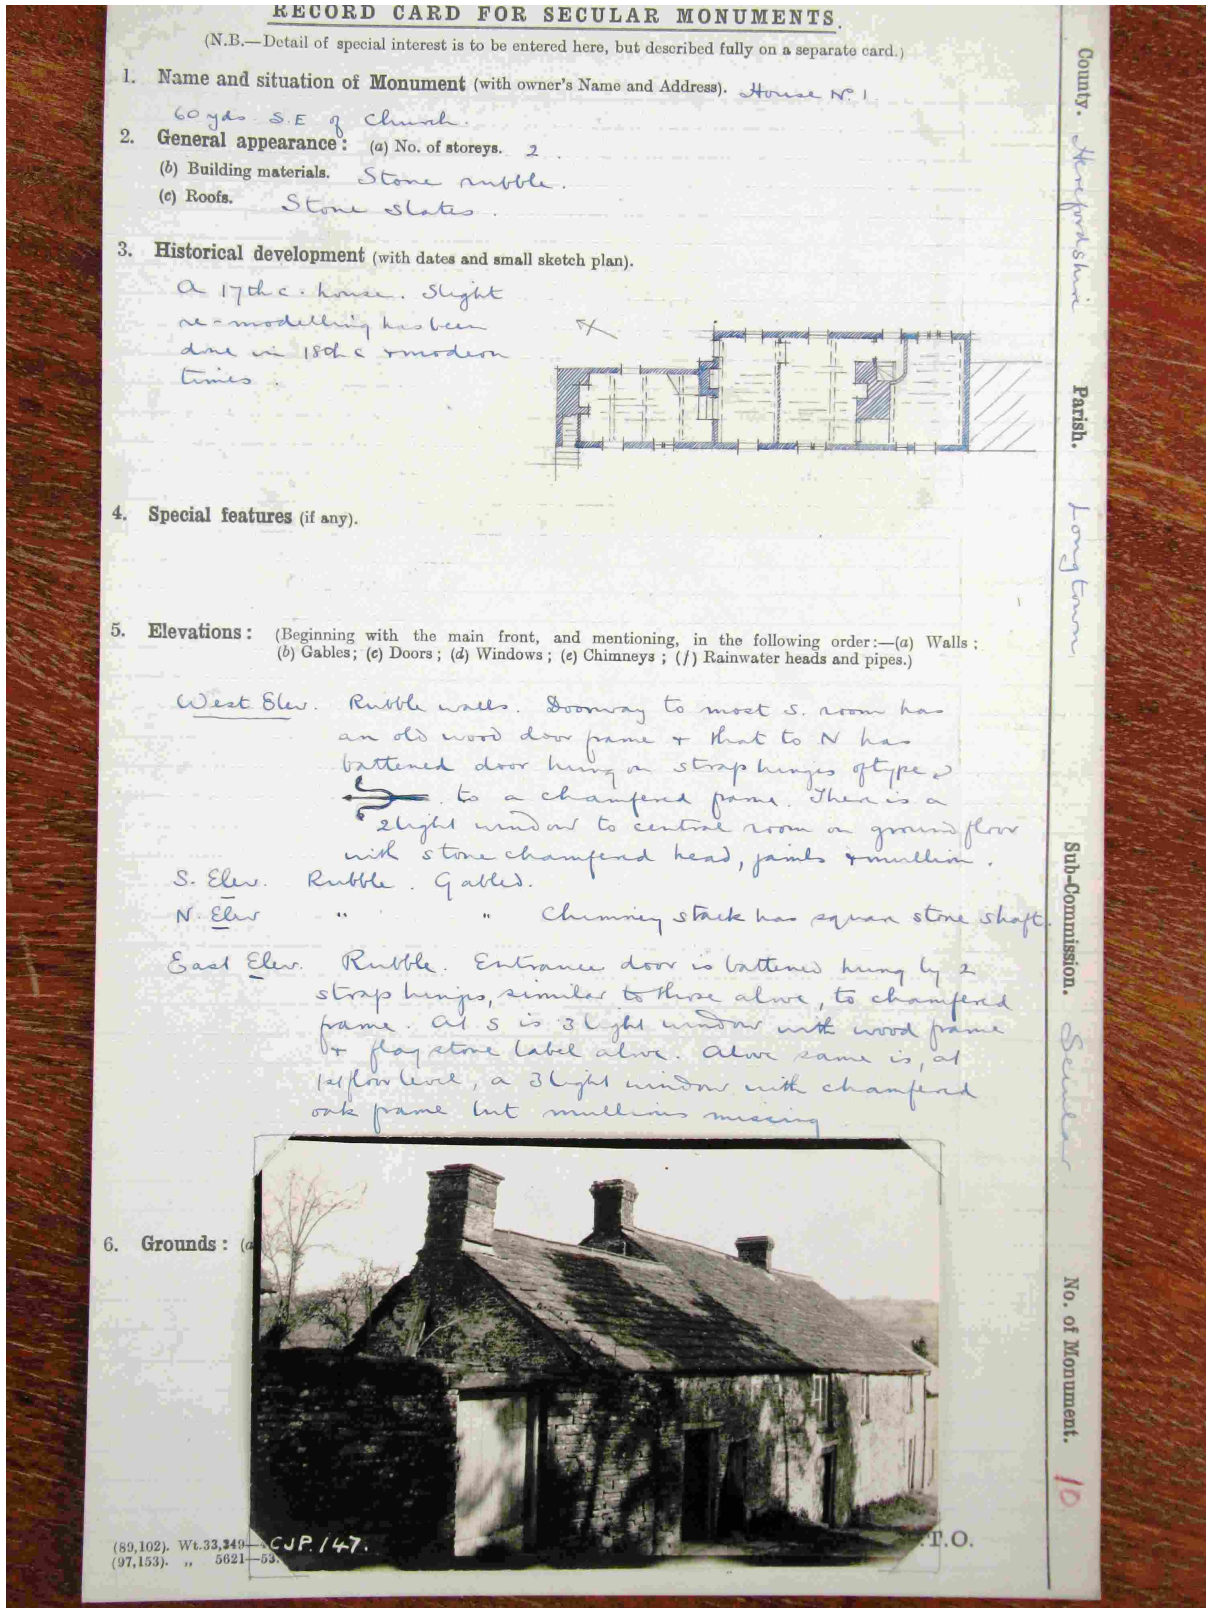 RECORD CARD FOR SECULAR MONUMENTS.
(N.B.—Detail of special interest is to be entered here, but described fully on a separate card.)
1. Name and situation of Monument (with owner's Name and Address). House No. 1
60 yds S.E of Church.
2. General appearance: (a) No. of storeys. 2
(b) Building materials. Stone rubble.
(c) Roofs. Stone slates.
3. Historical development (with dates and small sketch plan).
A 17th c. house. Slight
re-modelling has been
done in 18th c + modern
times.
4. Special features (if any).
5. Elevations: (Beginning with the main front, and mentioning, in the following order:—(a) Walls;
(b) Gables; (c) Doors; (d) Windows; (e) Chimneys; (f) Rainwater heads and pipes.)
West Elev. Rubble walls. Doorway to most S. room has
an old wood door frame + that to N has
battened door hung on strap hinges of type
to a chamfered frame. There is a
2 light window to central room on ground floor
with stone chamfered head, jambs + mullion.
S. Elev. Rubble. Gabled.
N. Elev " " Chimney stack has square stone shaft.
East Elev. Rubble. Entrance door is battened hung by 2
strap hinges, similar to those above, to chamfered
frame. At S is 3 light window with wood frame
+ flag stone label above. Above same is, at
1st floor level, a 3 light window with chamfered
oak frame but mullions missing
6. Grounds: (a
CJP. 147.
(89,102). Wt.33,349—
(97,153). „ 5621—53.
.T.O.
County. Herefordshire
Parish. Longtown
Sub-Commission. Secular
No. of Monument. 10